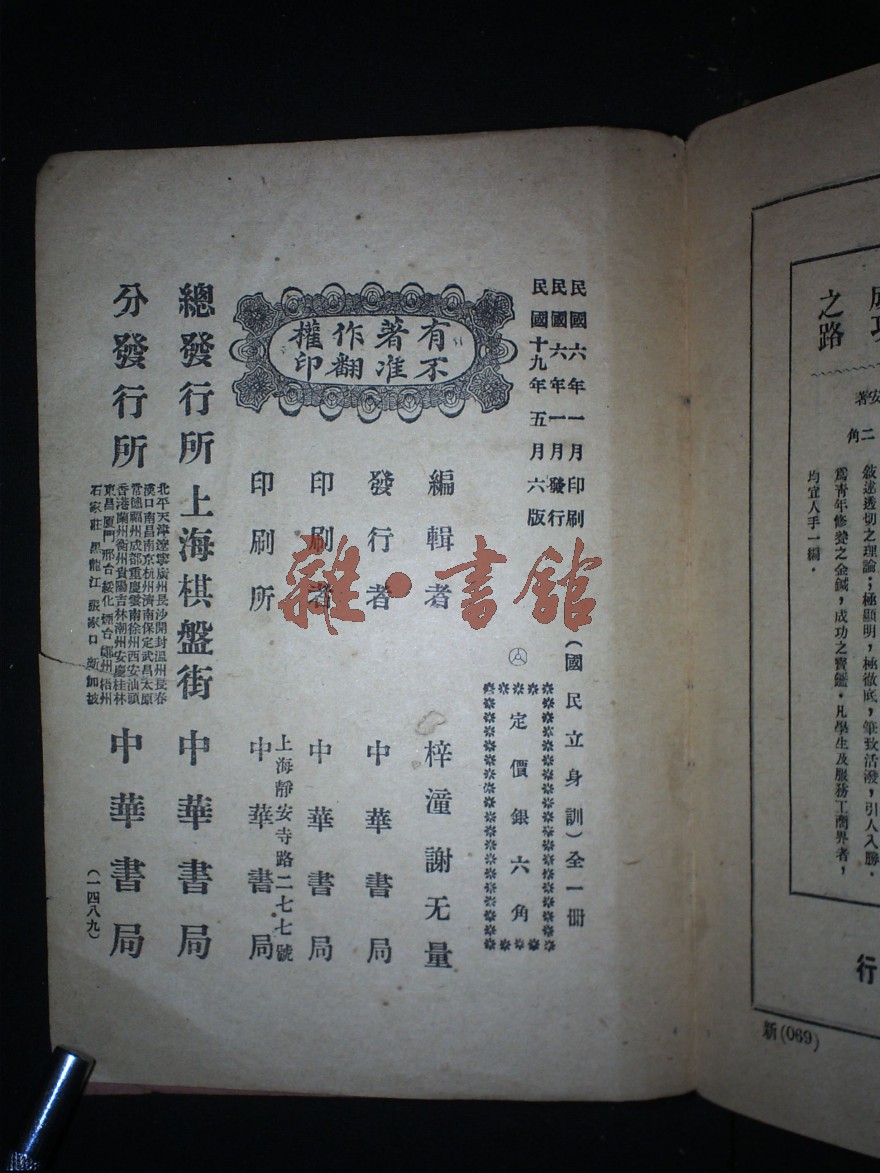 成功之路
安著
二角
敘述透切之理論；極顯明，極徹底，筆致活潑，引人入勝．
爲青年修養之金鍼，成功之寶鑑．凡學生及服務工商界者，
均宜人手一編．
行
新(069)
民國六年一月印刷
民國六年一月發行
民國十九年五月六版
有著作權
不准翻印
(國民立身訓)全一冊
定價銀六角
編輯者 梓潼謝无量
發行者 中華書局
印刷者 中華書局
上海靜安寺路二七七號
印刷所 中華書局
總發行所 上海棋盤街 中華書局
分發行所
北平天津遼寧廣州長沙開封溫州長春
漢口南昌南京杭州濟南保定武昌太原
常德福州成都重慶雲南徐州西安汕頭
香港蘭州衡州貴陽吉林潮州安慶桂林
東昌廈門邢台綏化煙台鄭州梧州
石家莊黑龍江張家口新加坡
中華書局
(一四八九)
雜·書館